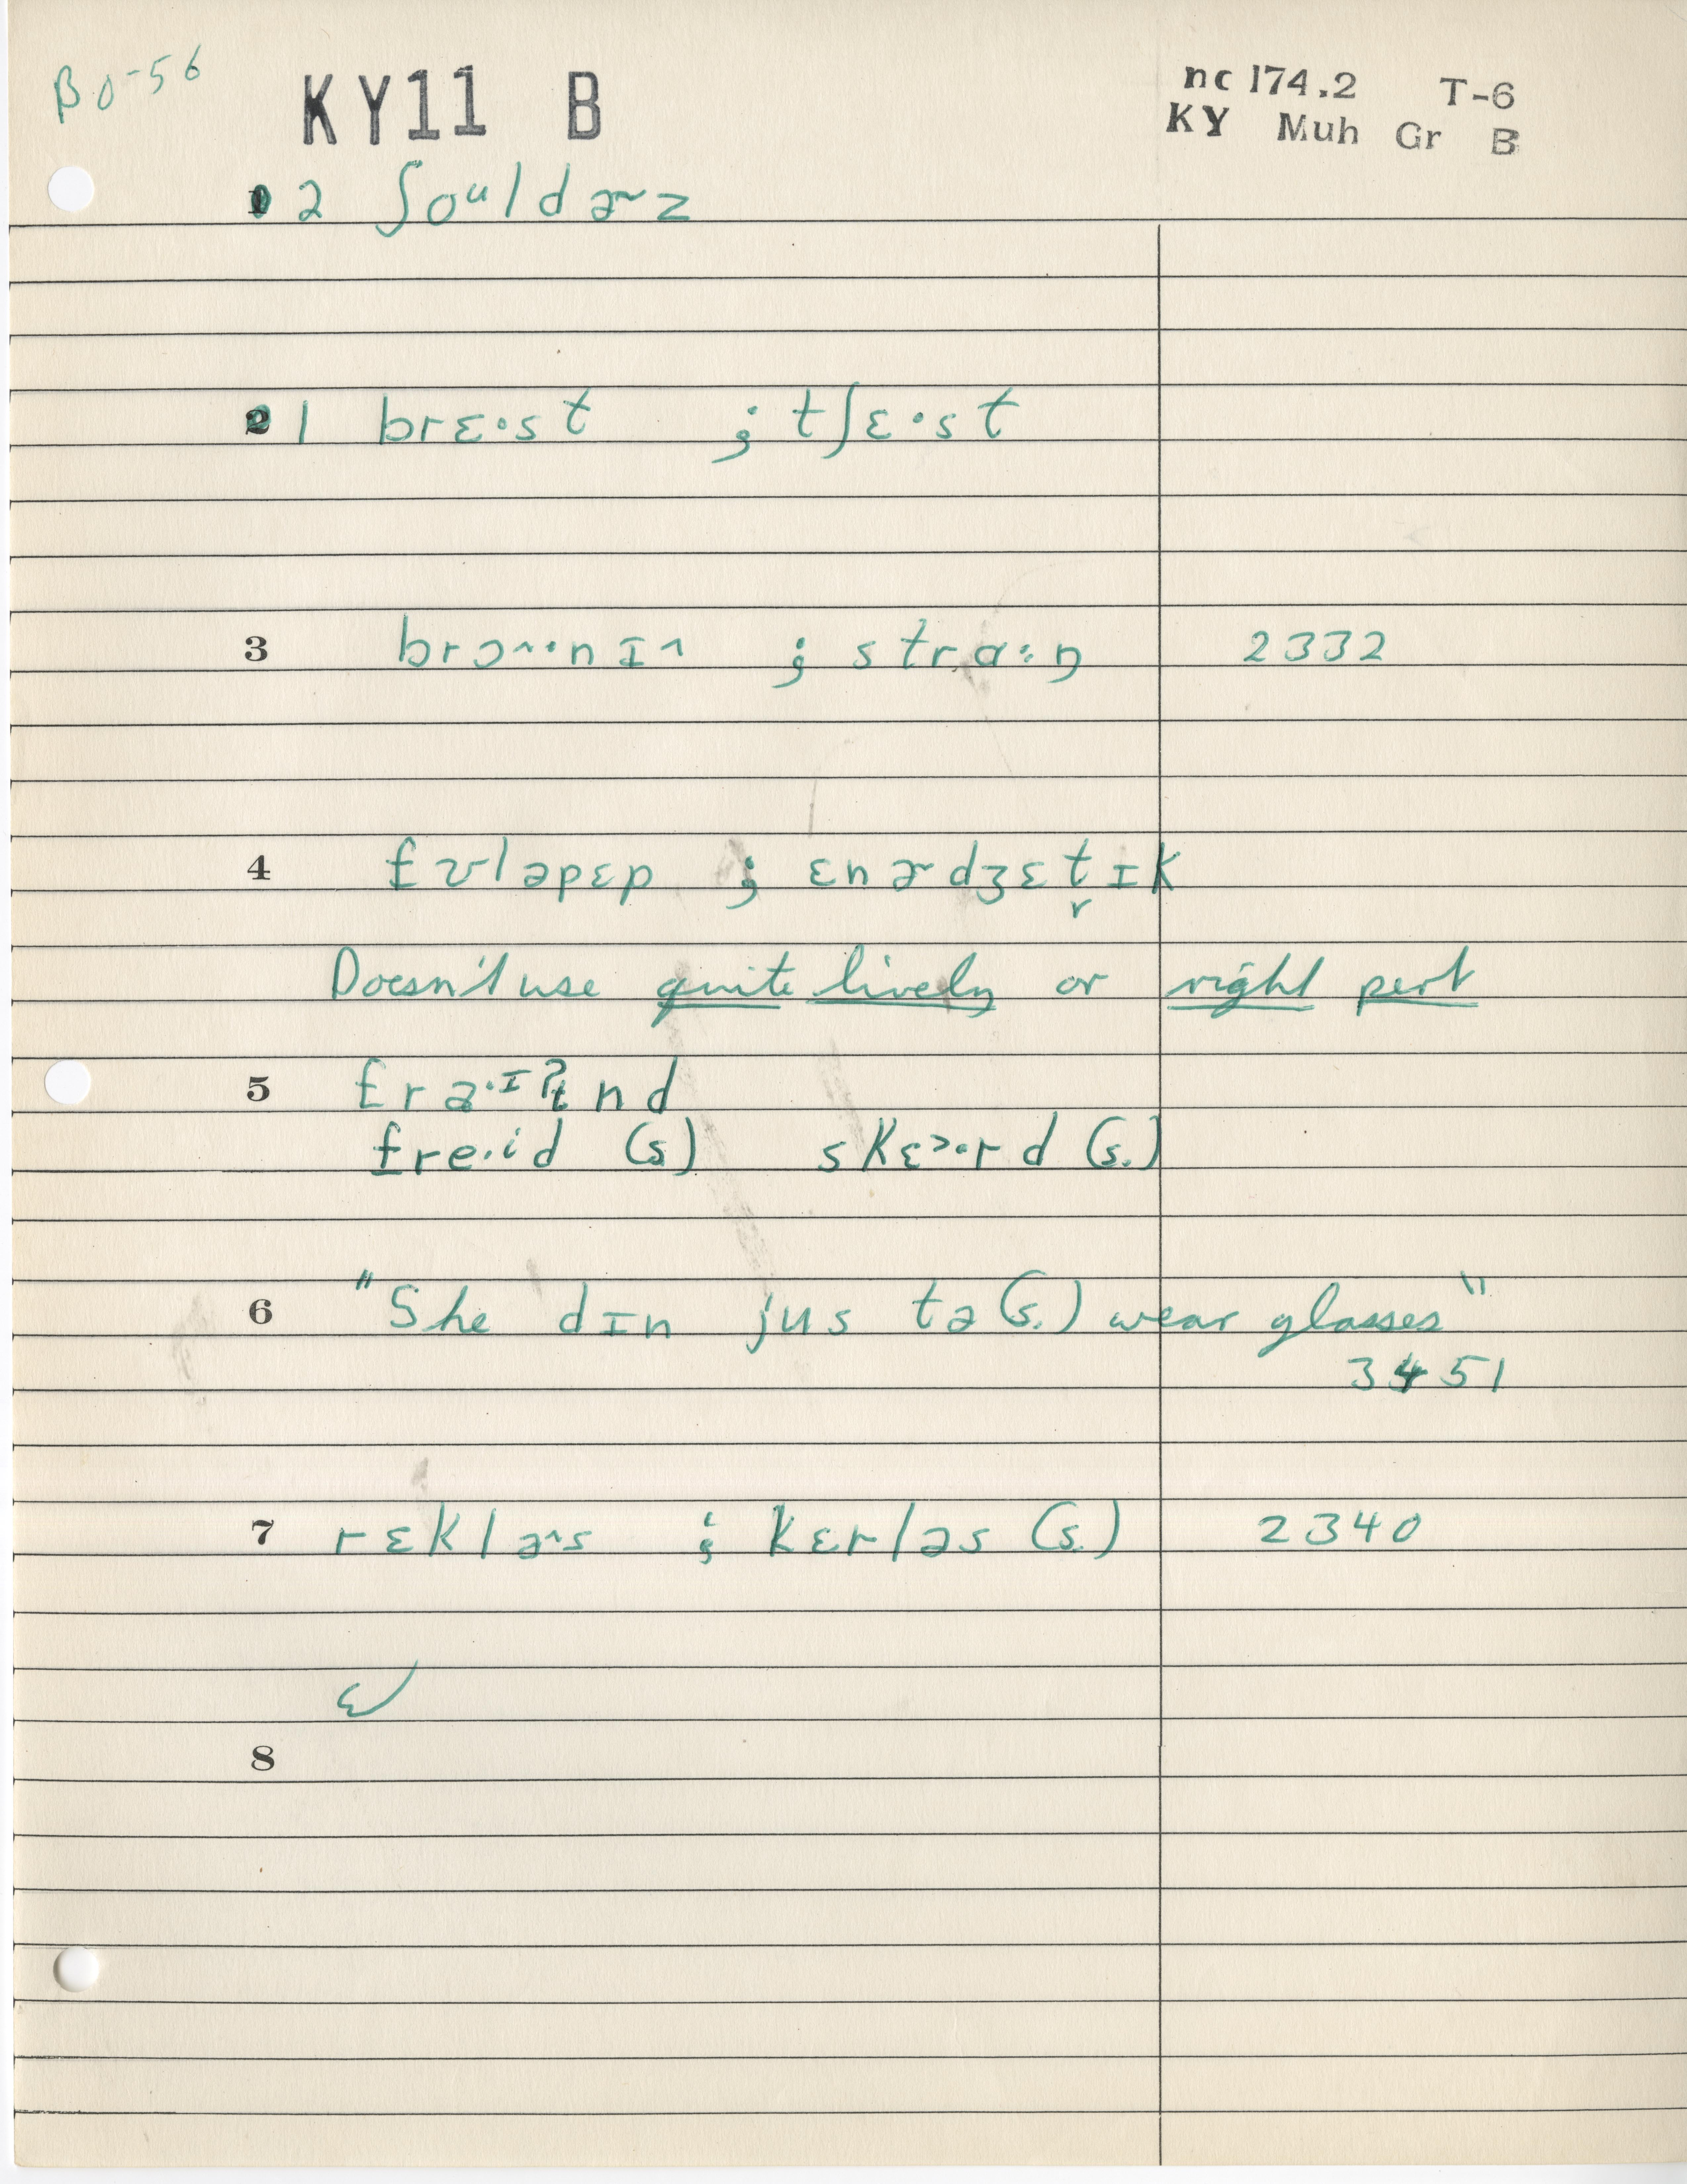 B0-56 KY11 B nc 174.2 T-6
KY Muh Gr B
2 ʃoᵘldɚz
1 brɛ·st ; tʃɛ·st
3 ; strɑ:ŋ 2332
4 fʊləpɛp ; ɛnɚdʒɛtɪk
Doesn't use quite lively or right pert
5
fre·id (s) (s.)
6 "She dɪn jus tə (s.) wear glasses"
3451
7 ; kɛrləs (s.) 2340
8